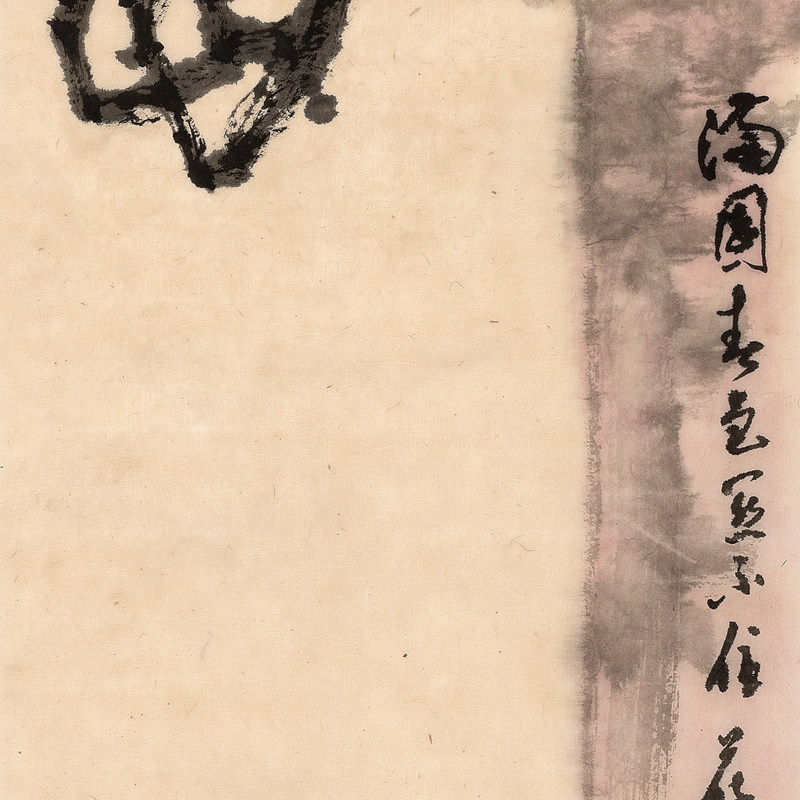 滿園春色關不住